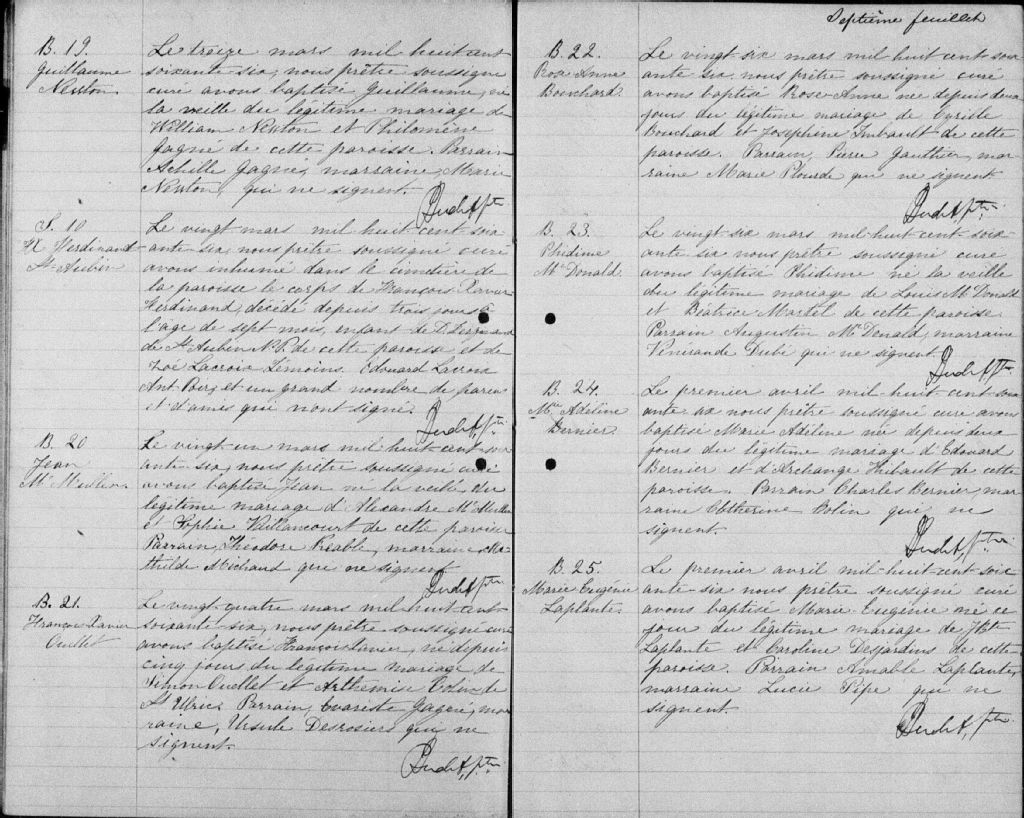 B. 19.
Guillaume
Newton.
Le treize mars mil huit cent
soixante six, nous prêtre soussigné
curé avons baptisé Guillaume, né
la veille du légitime mariage de
William Newton et Philomène
Gagné de cette paroisse. Parrain
Achille Gagné, marraine, Marie
Newton, qui ne signent.
S. 10
Ferdinand
St Aubin
Le vingt mars mil huit cent soix-
ante-six, nous prêtre soussigné curé
avons inhumé dans le cimetière de
la paroisse le corps de François Xavier
Ferdinand, décédé depuis trois jours à
l'âge de sept mois, enfant de D. Ferdinand
de St Aubin N.P. de cette paroisse et de
Zoé Lacroix. Témoins. Edouard Lacroix
Ant. Berg et un grand nombre de paren
et d'amis qui n'ont signé.
B. 20
Jean
Mc Mullen
Le vingt un mars mil huit cent soix
ante-six, nous prêtre soussigné curé
avons baptisé Jean né la veille du
légitime mariage d'Alexandre Mc Mullen
et Sophie Vaillancourt de cette paroisse
Parrain, Théodore Réable, marraine Ma-
thilde Michaud qui ne signent
B. 21.
François Xavier
Ouellet
Le vingt-quatre mars mil huit cent
soixante-six, nous prêtre soussigné curé
avons baptisé François Xavier, né depuis
cinq jours du légitime mariage de
Simon Ouellet et Arthémise Colin de
St Ulric. Parrain, Evariste Gagné, mar
raine, Ursule Desrosiers qui ne
signent.
Septième feuillet
B. 22.
Rose Anne
Bouchard.
Le vingt six mars mil huit cent soix
ante six nous prêtre soussigné curé
avons baptisé Rose-Anne née depuis deux
jours du légitime mariage de Cyrille
Bouchard et Joséphine Imbault de cette
paroisse. Parrain, Pierre Gauthier, mar
raine Marie Plourde qui ne signent
B. 23.
Phidime
Mc Donald.
Le vingt six mars mil huit cent soix-
ante six nous prêtre soussigné curé
avons baptisé Phidime né la veille
du légitime mariage de Louis Mc Donald
et Béatrice Martel de cette paroisse
Parrain Augustin Mc Donald, marraine
Vénérande Dubé qui ne signent
B. 24.
Mie Adéline
Bernier.
Le premier avril mil huit cent soix
ante six nous prêtre soussigné curé avons
baptisé Marie Adéline née depuis deux
jours du légitime mariage d'Edouard
Bernier et d'Archange Thibault de cette
paroisse. Parrain Charles Bernier, mar
raine Catherine Colin qui ne
signent.
B. 25.
Marie Eugénie
Laplante.
Le premier avril mil huit cent soix
ante-six nous prêtre soussigné curé
avons baptisé Marie Eugénie née ce
jour du légitime mariage de J Bte
Laplante et Caroline Desjardins de cette
paroisse. Parrain Amable Laplante,
marraine Lucie Pépe qui ne
signent.